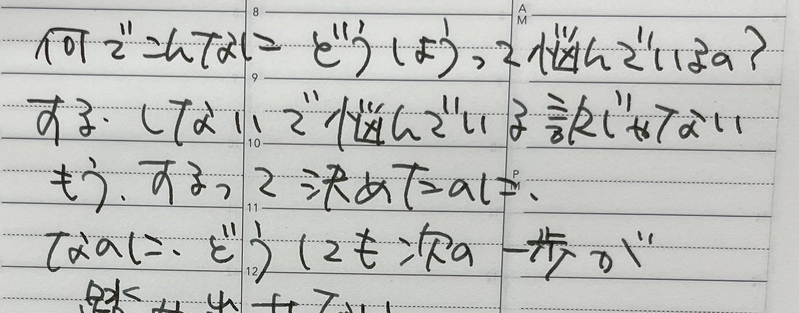 何でこんなに どうしようって悩んでいるの?
する・しないで悩んでいる訳じゃない
もう、するって決めたのに、
なのに、どうしても次の一歩が
踏み出せない
8
9
10
11
12
AM
PM